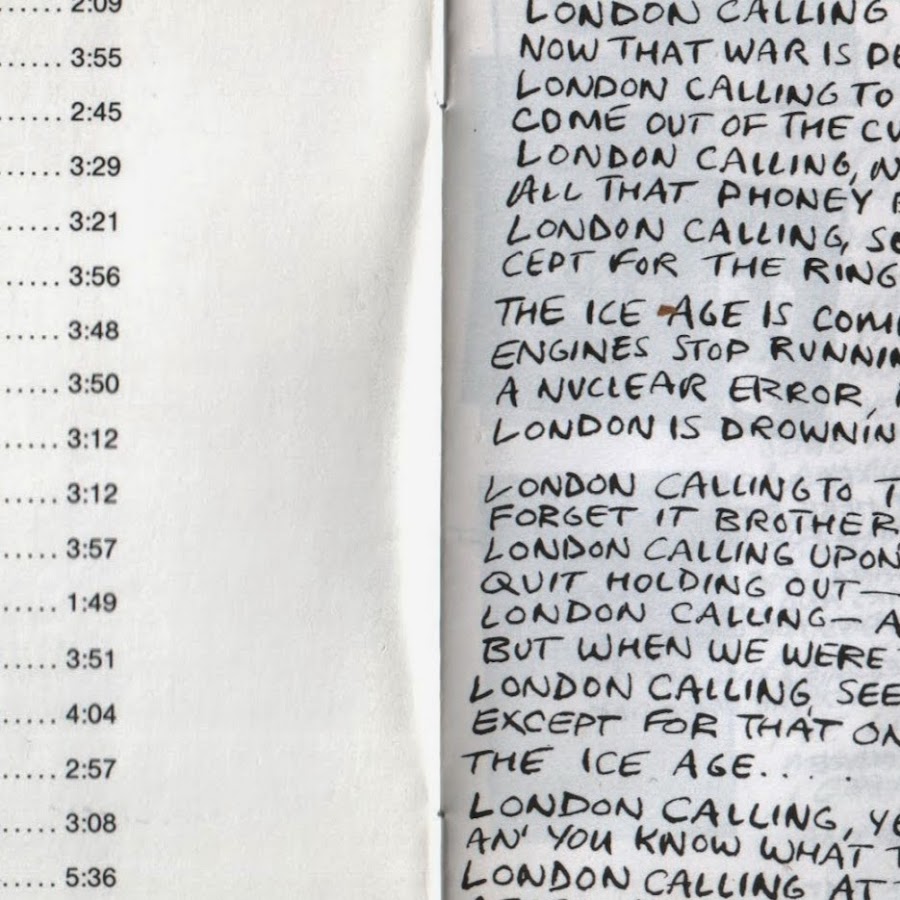 2:09
3:55
2:45
3:29
3:21
3:56
3:48
3:50
3:12
3:12
3:57
1:49
3:51
4:04
2:57
3:08
5:36
LONDON CALLING
NOW THAT WAR IS DE
LONDON CALLING TO
COME OUT OF THE CU
LONDON CALLING, N
ALL THAT PHONEY
LONDON CALLING, SE
CEPT FOR THE RING
THE ICE AGE IS COMI
ENGINES STOP RUNNIN
A NUCLEAR ERROR,
LONDON IS DROWNIN
LONDON CALLING TO T
FORGET IT BROTHER
LONDON CALLING UPON
QUIT HOLDING OUT—
LONDON CALLING— A
BUT WHEN WE WERE
LONDON CALLING, SEE
EXCEPT FOR THAT ON
THE ICE AGE....
LONDON CALLING, YE
AN' YOU KNOW WHAT T
LONDON CALLING AT